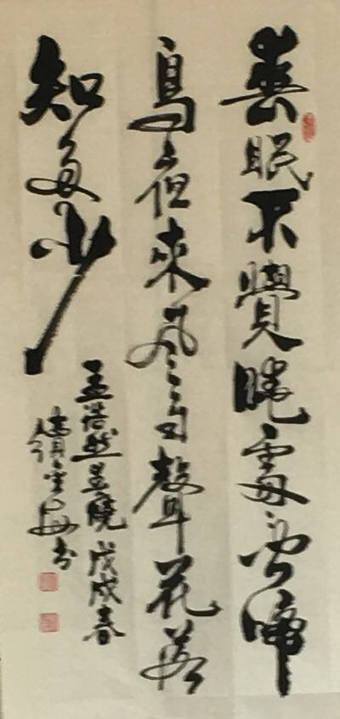 春眠不覺曉處々聞啼
鳥夜來風雨聲花落
知多少
孟浩然春曉 戊戌春